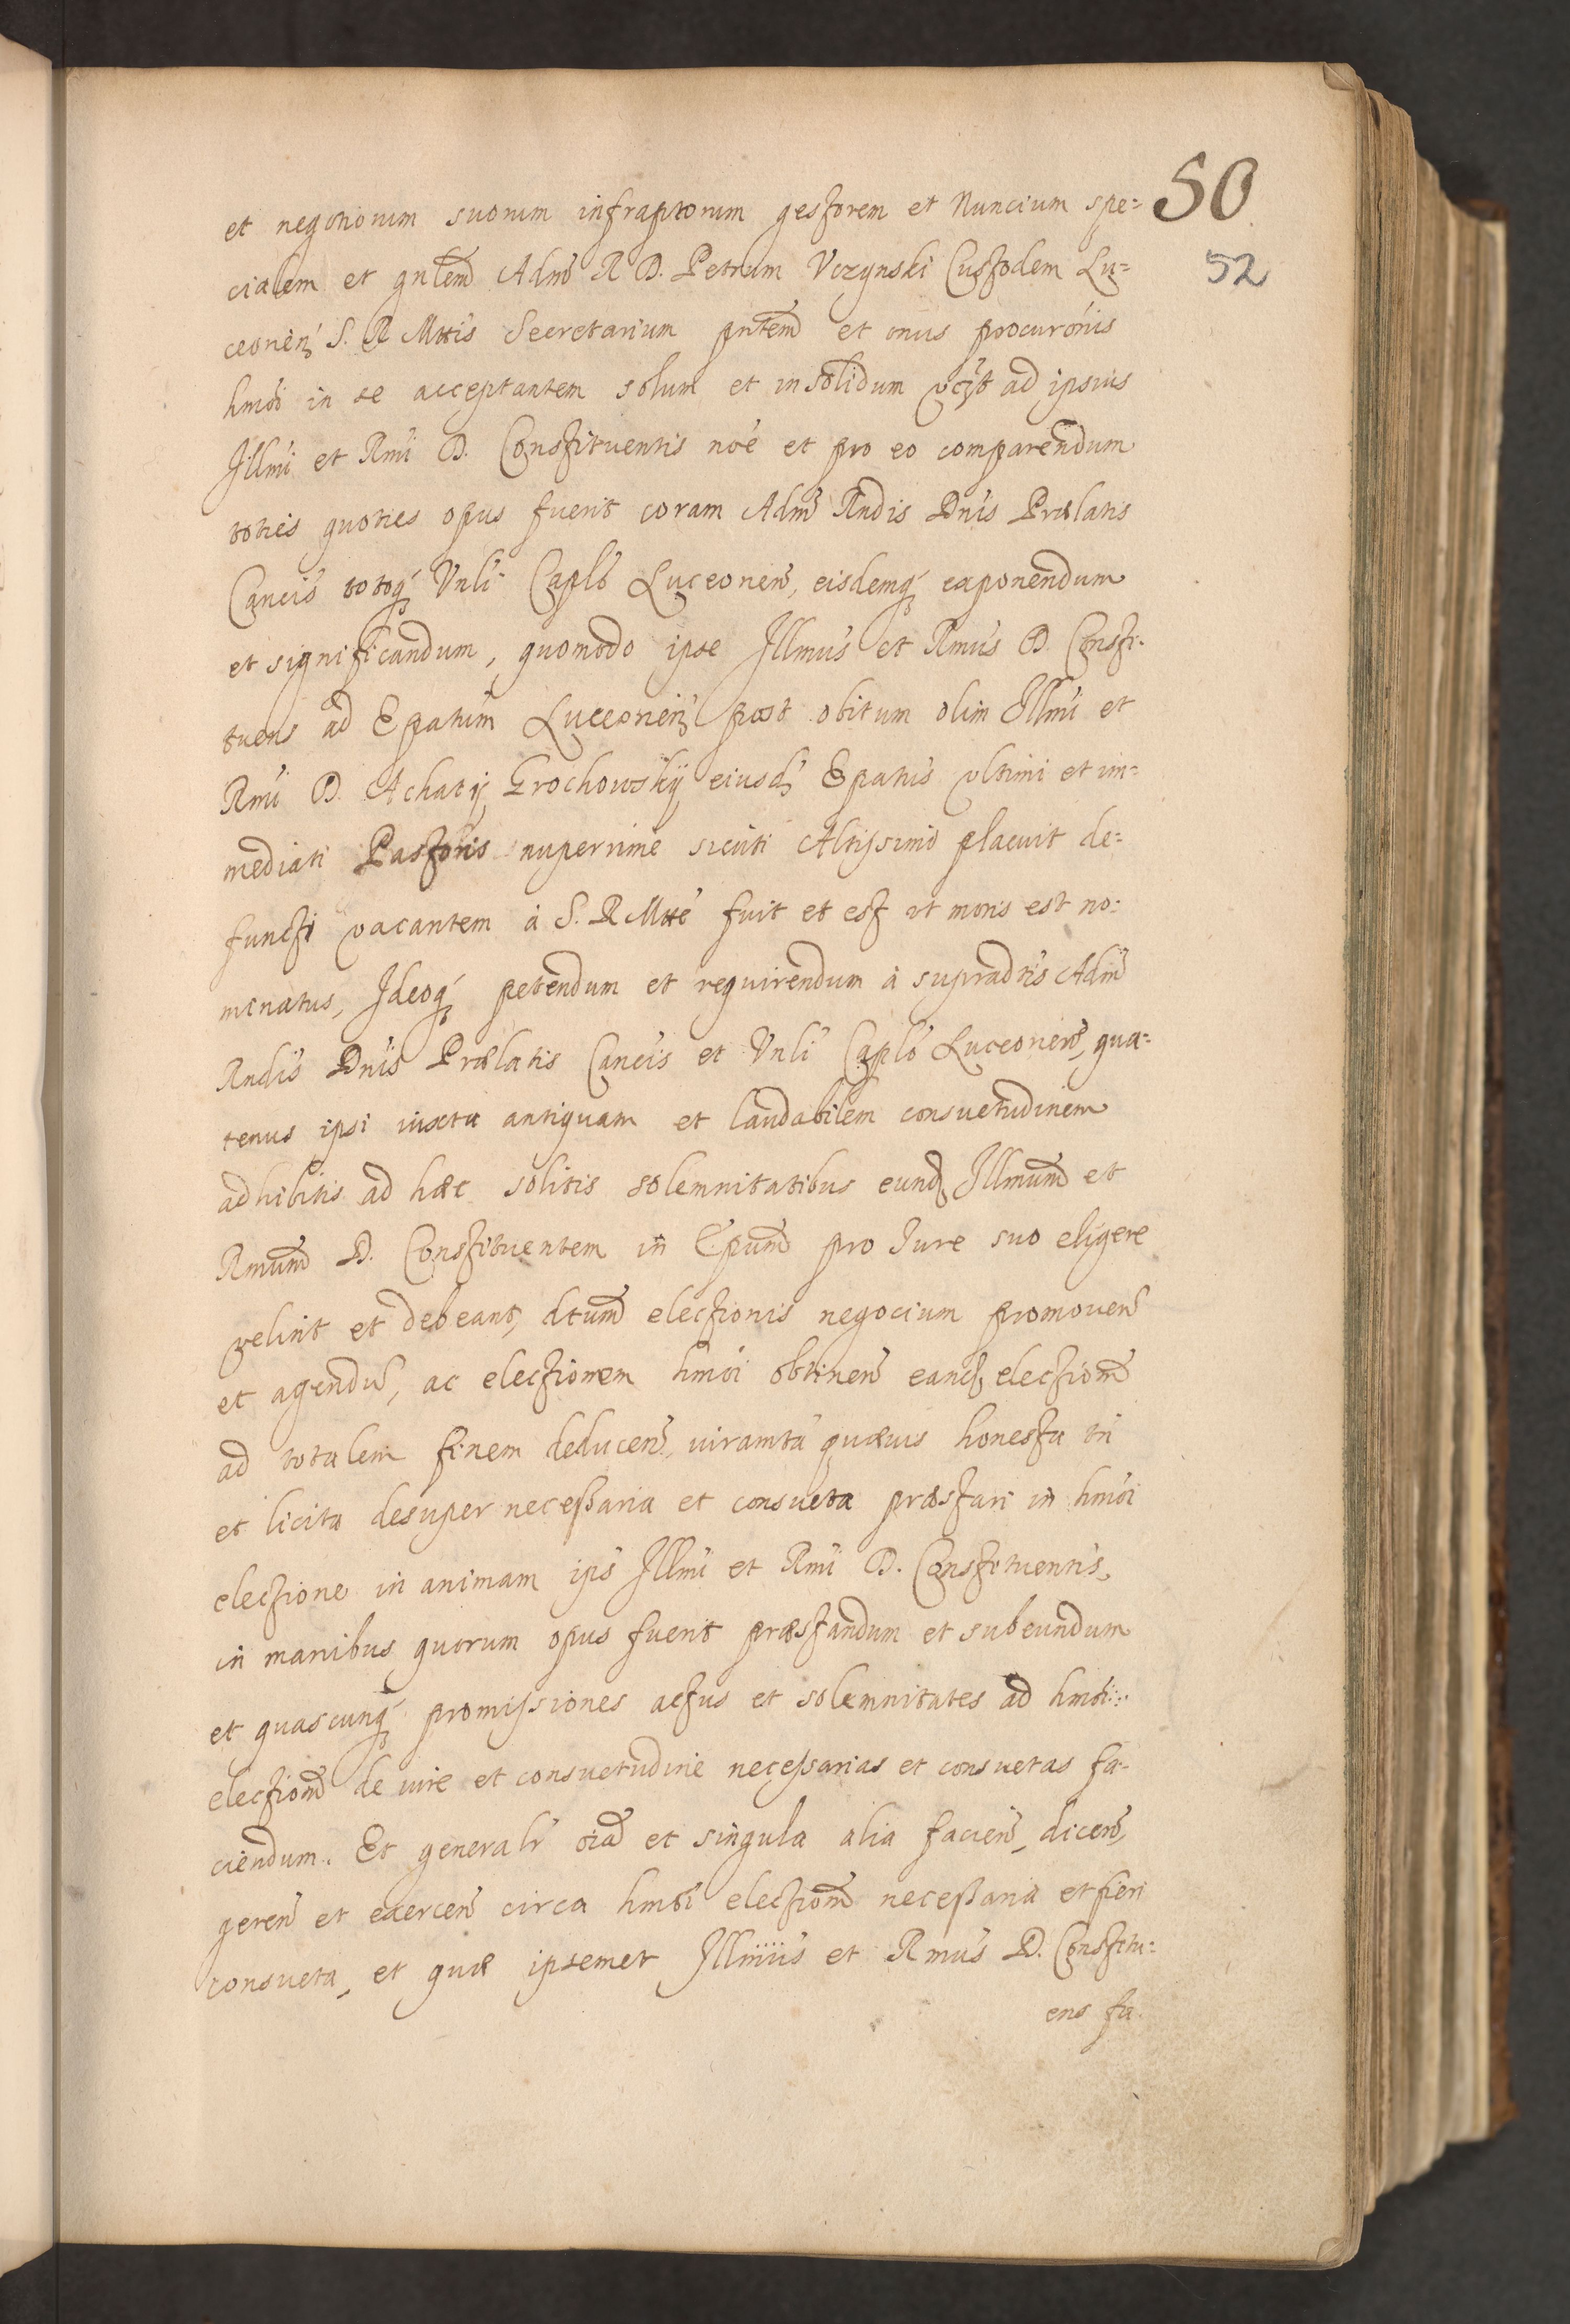 50
52
et negotiorum suorum infraptorum gestorem et Nuncium spe=
cialem et gnlem Adm R D. Petrum Vczynski Custodem Lu=
ceonen S. R Mttis Secretarium pntem et onus procuronis
hmoi in se acceptantem solum et in solidum vczt ad ipsius
Illmi et Rmi D. Constituentis noe et pro eo comparendum
toties quoties opus fuerit coram Adm Rndis Dnis Prælatis
Cancis totoq Vnli Caplo Luceonen, eisdemq exponendum
et significandum, quomodo ipse Illmus et Rmus D. Consti-
tuens ad Epatum Luceonen post obitum olim Illmi et
Rmi D. Achatij Grochowskij eiusd Epatus vltimi et im=
mediati Pastoris nuperrime sicuti Altissimo placuit de=
functi vacantem à S. R Mtte fuit et est vt moris est no=
minatus, Ideoq petendum et requirendum à supradtis Adm
Rndis Dnis Prælatis Cancis et Vnli Caplo Luceonen, qua=
tenus ipsi iuxta antiquam et laudabilem consuetudinem
adhibitis ad hæc solitis solemnitatibus eund Illmum et
Rmum D. Constituentem in Epum pro Iure suo eligere
velint et debeant, dtum electionis negocium promouen
et agendu, ac electionem hmoi obtinen eand electiom
ad totalem finem deducen, iuramta quæuis honesta tn
et licita desuper necessaria et consueta præstari in hmoi
electione in animam ips Illmi et Rmi D. Constituentis,
in manibus quorum opus fuerit præstandum et subeundum
et quascunq promissiones actus et solemnitates ad hmoi
electiom de iure et consuetudine necessarias et consuetas fa-
ciendum. Et generalr oia et singula alia facien, dicen,
geren et exercen circa hmoi electiom necessaria et fieri
consueta, et quæ ipsemet Illmus et Rmus D. Constitu=
ens fa.